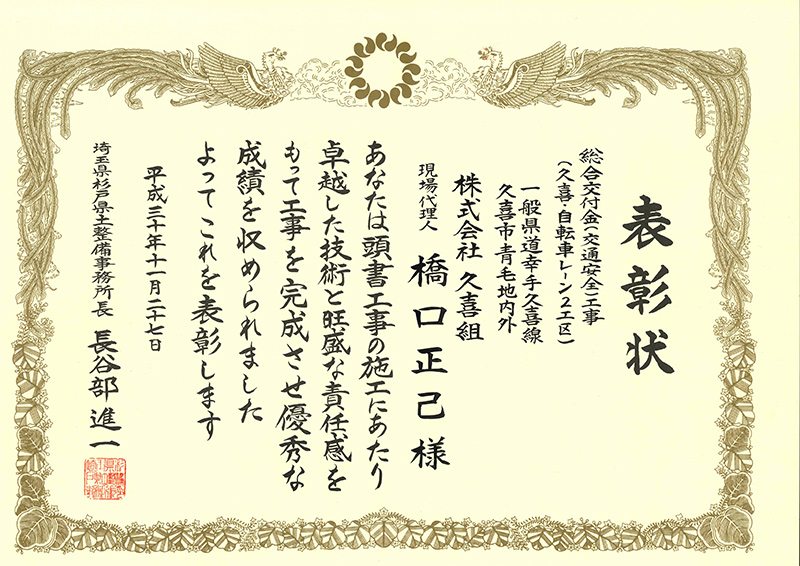 表彰状
総合交付金(交通安全)工事
(久喜・自転車レーン2工区)
一般県道幸手久喜線
久喜市青毛地内外
株式会社 久喜組
現場代理人 橋口正己様
あなたは頭書工事の施工にあたり
卓越した技術と旺盛な責任感を
もって工事を完成させ優秀な
成績を収められました
よってこれを表彰します
平成三十年十一月二十七日
埼玉県杉戸県土整備事務所長 長谷部進一